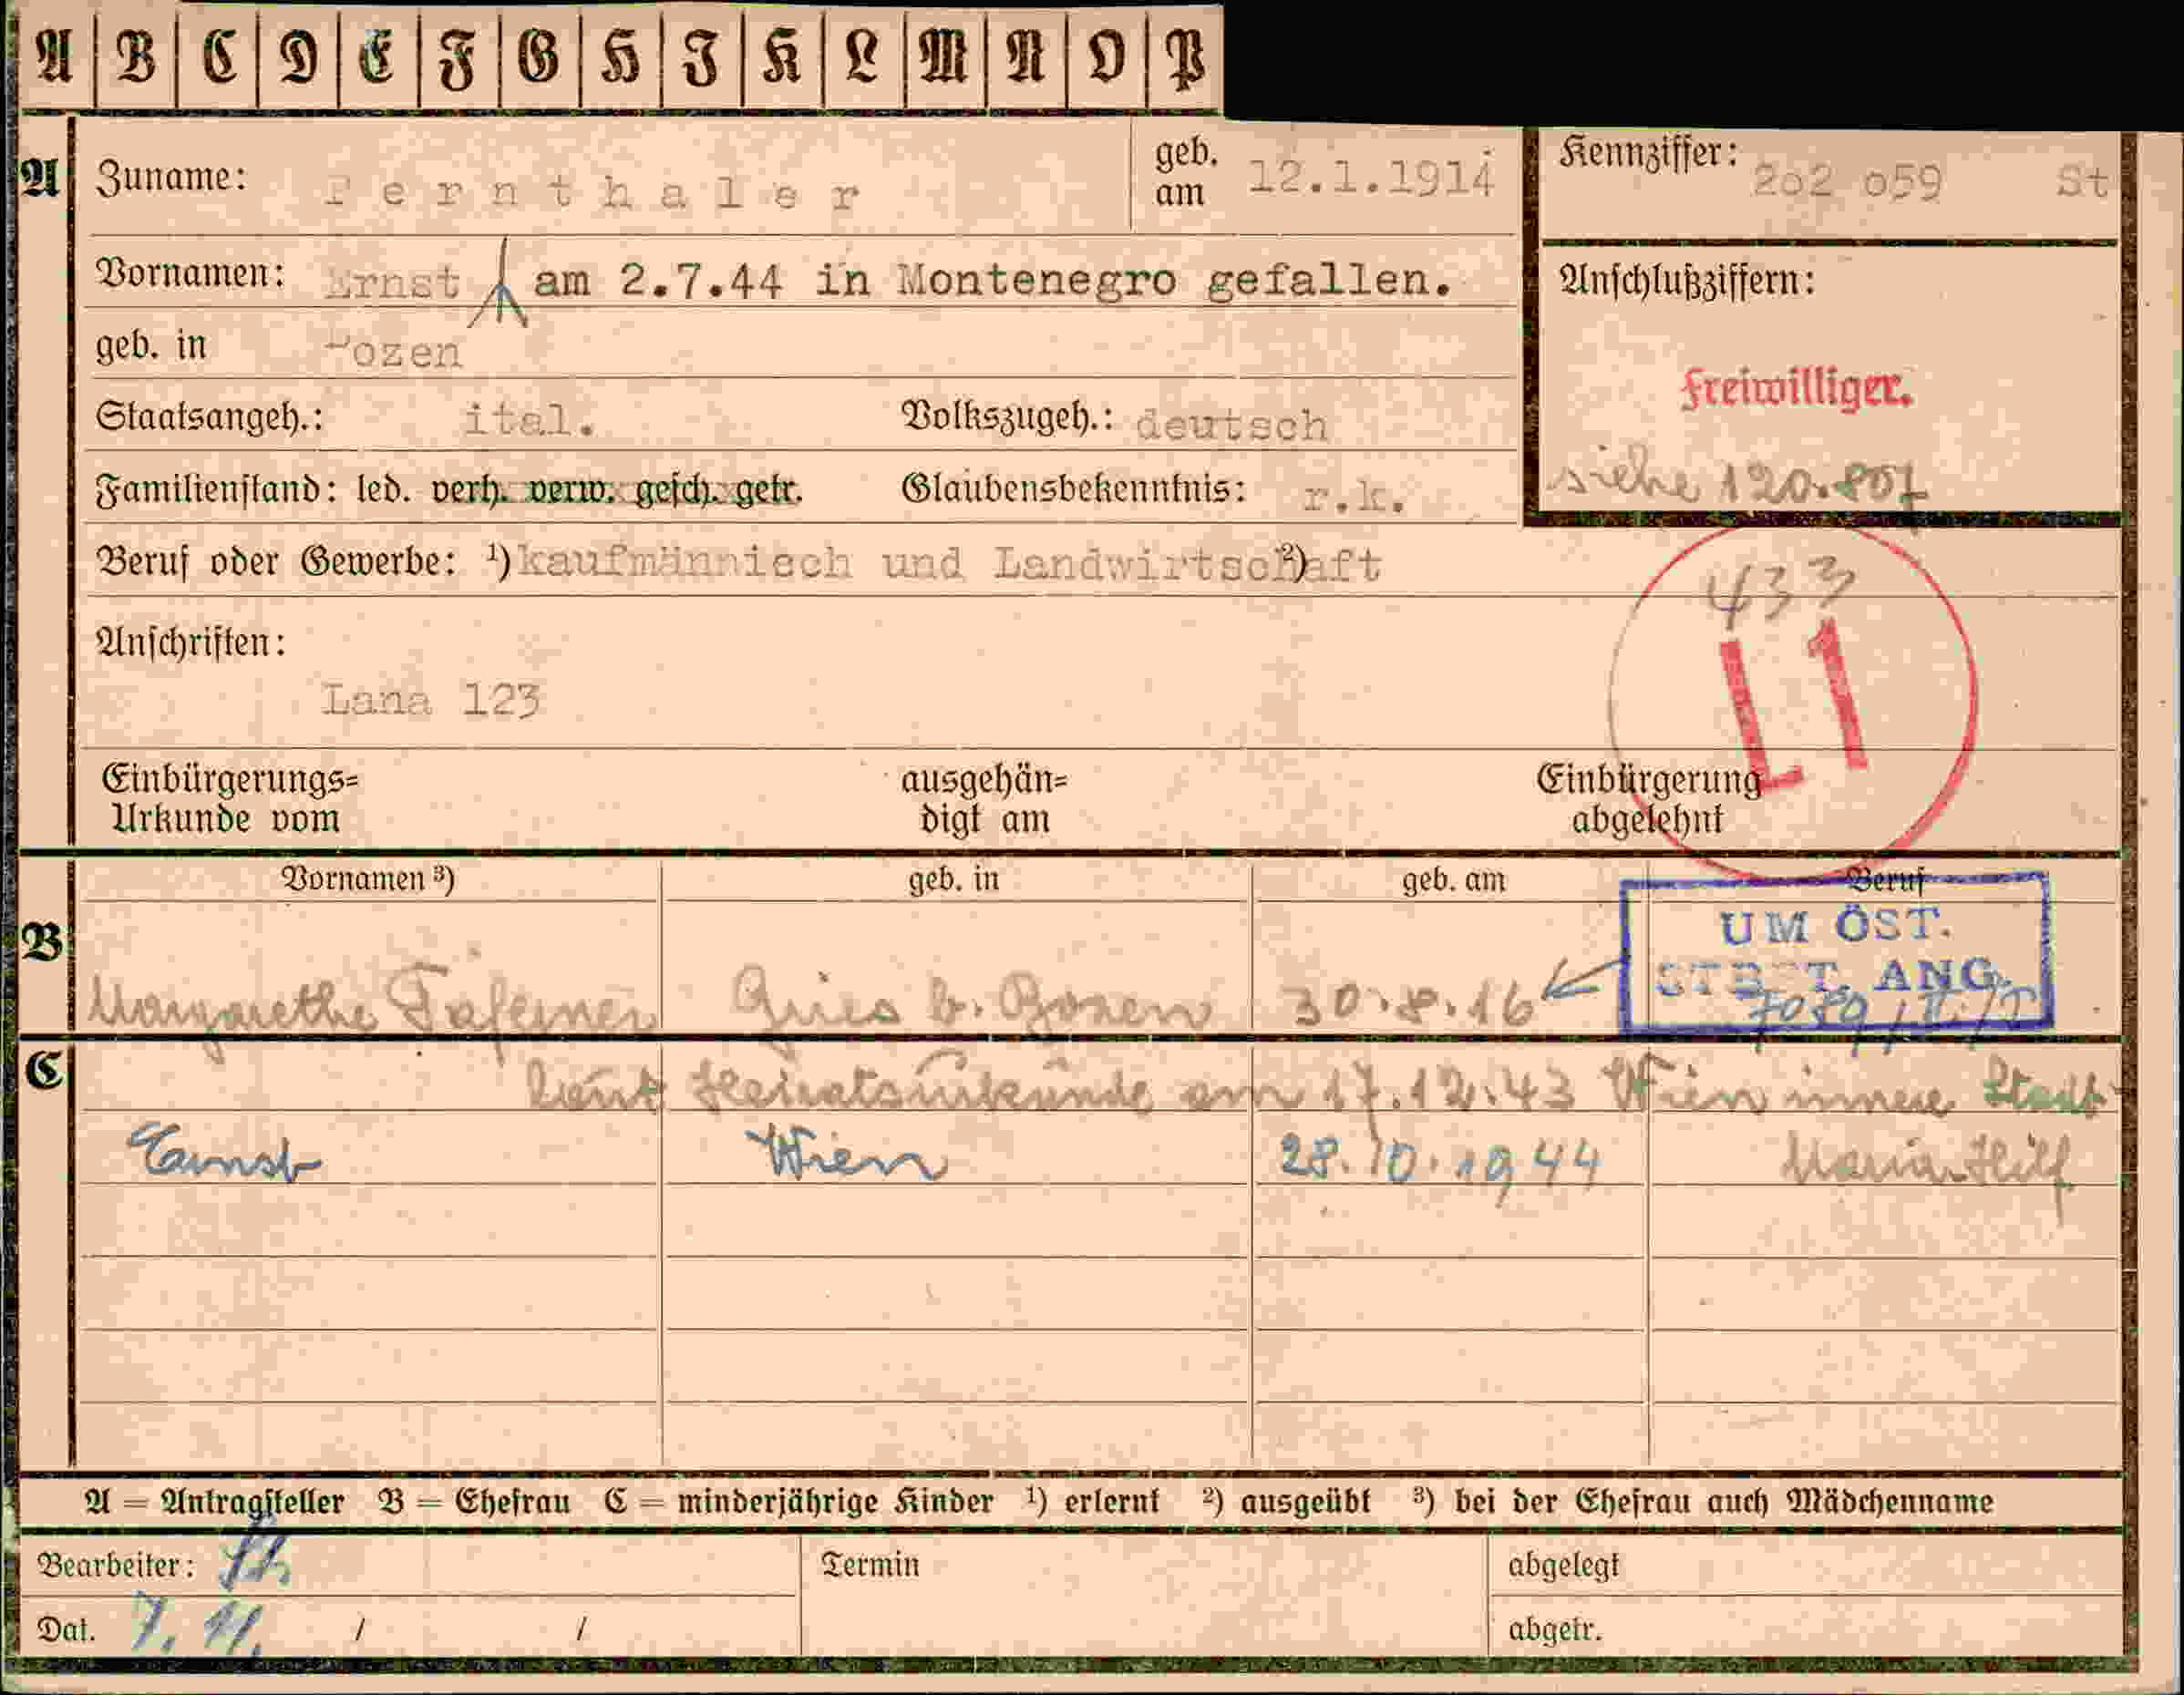 A B C D E F G H I K L M N O P
A Zuname: Pernthaler geb. am 12.1.1914 Kennziffer: 2o2 o59 St
Vornamen: Ernst am 2.7.44 in Montenegro gefallen. Anschlußziffern:
geb. in Bozen
Freiwilliger.
Staatsangeh.: ital. Volkszugeh.: deutsch
siehe 120.807
Familienstand: led. verh. verw. gesch. getr. Glaubensbekenntnis: r.k.
Beruf oder Gewerbe: ¹) kaufmännisch und Landwirtschaft ²)
433
L1
Anschriften:
Lana 123
Einbürgerungs=
Urkunde vom
ausgehän=
digt am
Einbürgerung
abgelehnt
B Vornamen ³) geb. in geb. am Beruf
UM ÖST.
ANG.
Margarethe Gries b. Bozen 30.8.16
C laut Heiratsurkunde am 17.12.43 Wien innere Stadt
Ernst Wien 28.10.1944 Maria Hilf
A = Antragsteller B = Ehefrau C = minderjährige Kinder ¹) erlernt ²) ausgeübt ³) bei der Ehefrau auch Mädchenname
Bearbeiter: Termin abgelegt
Dat. 7. 11. / / abgetr.